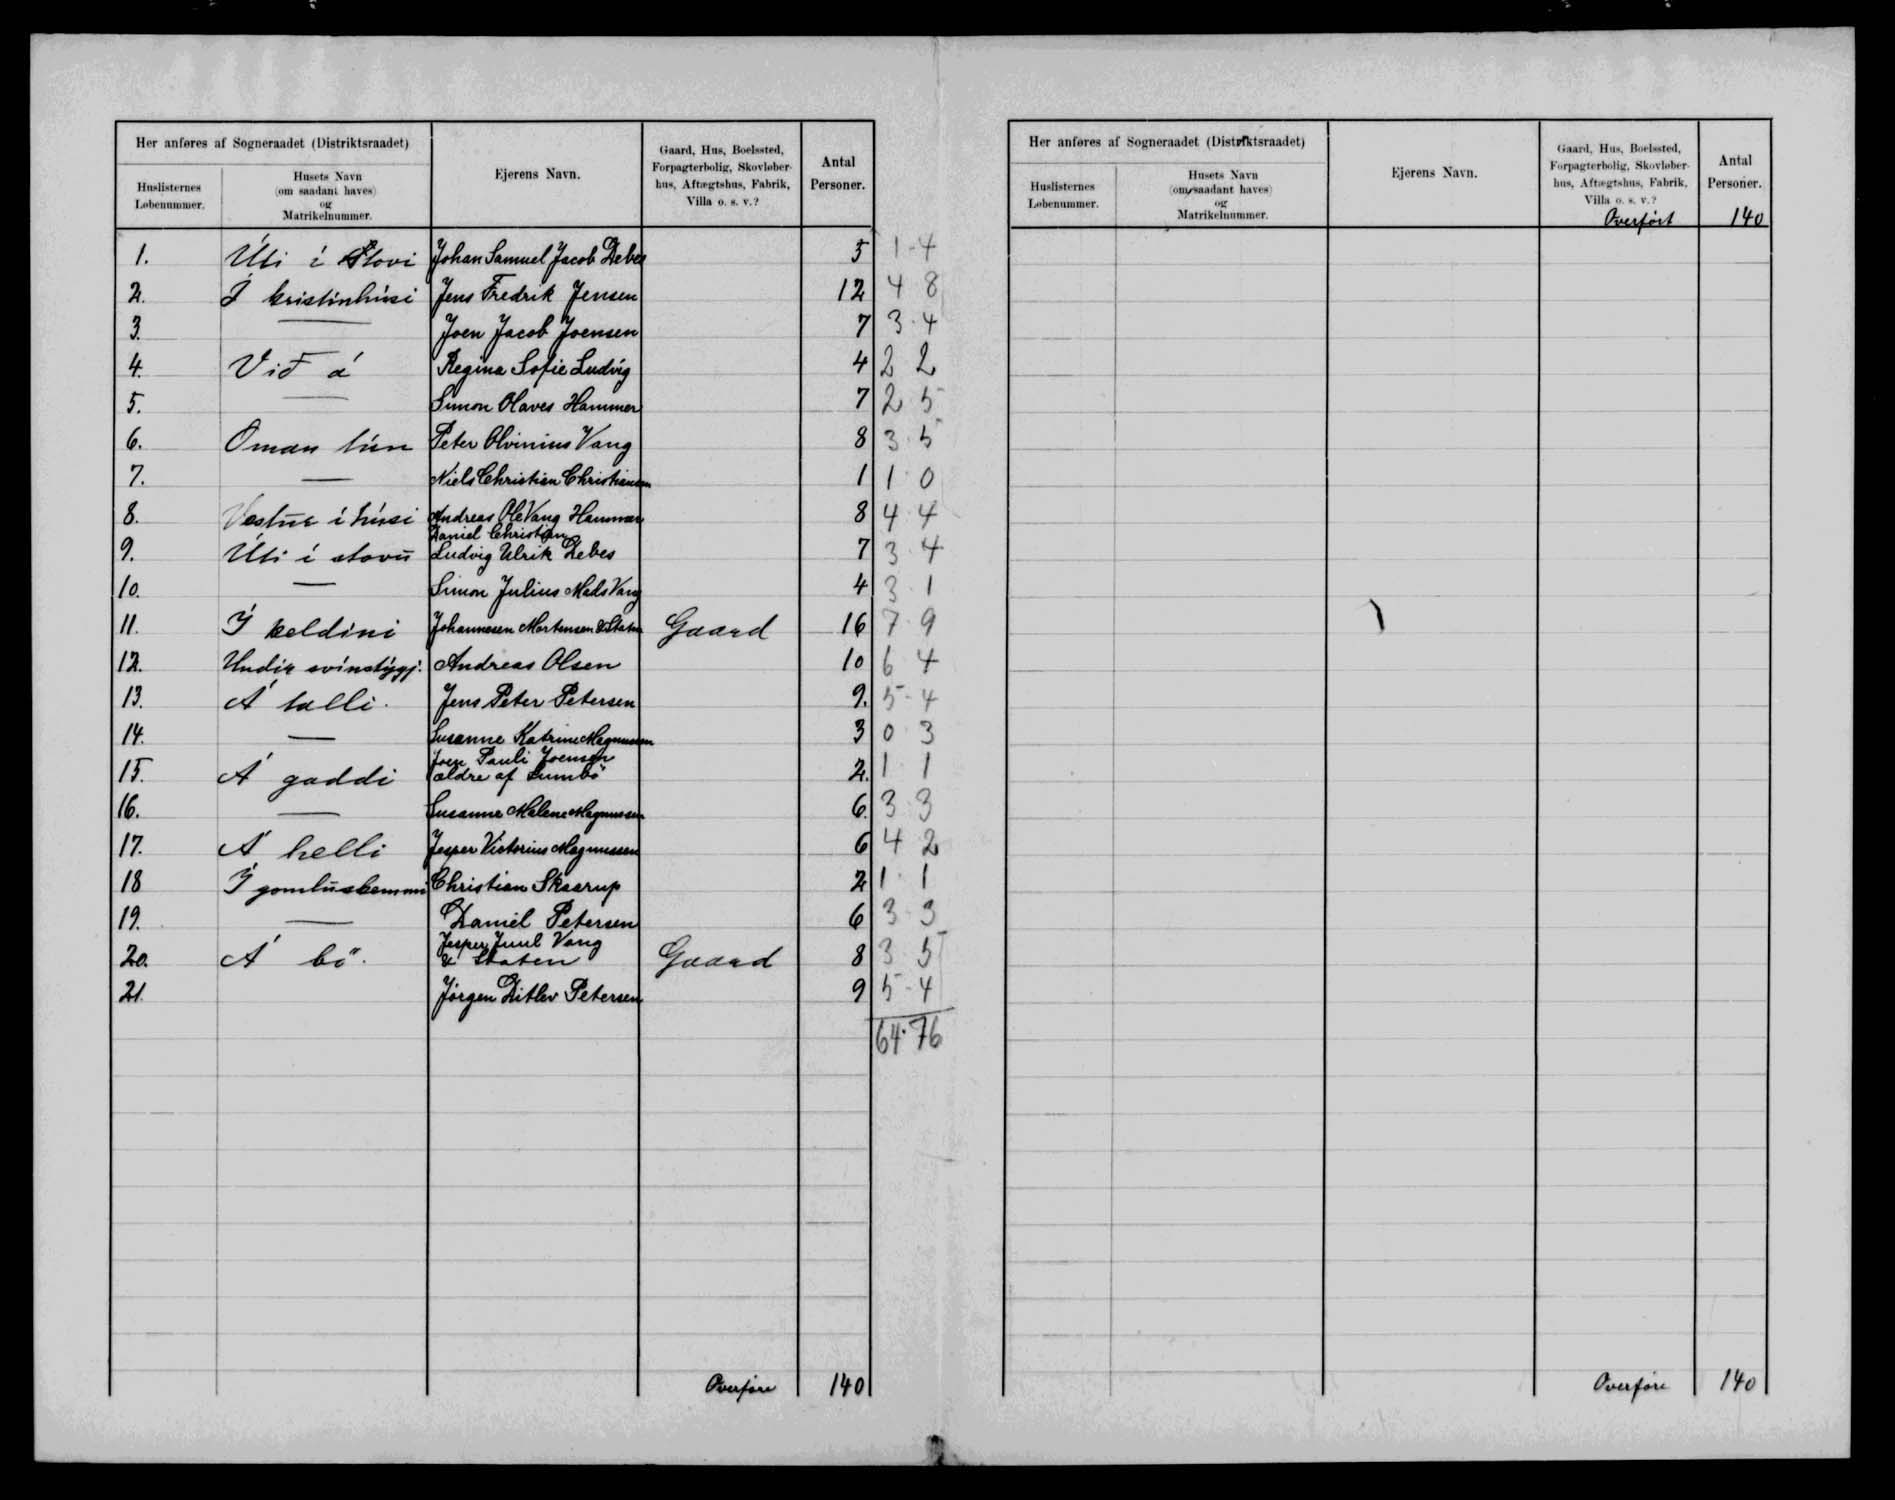 Her anføres af Sogneraadet (Distriktsraadet)
Huslisternes Løbenummer.
Husets Navn (om saadant haves) og Matrikelnummer.
Ejerens Navn.
Gaard, Hus, Boelssted, Forpagterbolig, Skovløberhus, Aftægtshus, Fabrik, Villa o. s. v.?
Antal Personer.
1. Úti í Stovi Johan Samuel Jacob Debes 5 1-4
2. Í kristinhúsi Jens Fredrik Jensen 12 4 8
3. — Joen Jacob Joensen 7 3-4
4. Við á Regina Sofie Ludvig 4 2 2
5. — Simon Olaves Hammer 7 2-5
6. Oman tún Peter Olvinius Vang 8 3-5
7. — Niels Christian Christiansen 1 1-0
8. Vestur í húsi Andreas Ole Vang Hammer 8 4-4
Daniel Christian
9. Úti í stovu Ludvig Ulrik Debes 7 3-4
10. — Simon Julius Mads Vang 4 3-1
11. Í keldini Johannesen Mortensen & Staten Gaard 16 7-9
12. Undir svínstýgj. Andreas Olsen 10 6-4
13. Á talli. Jens Peter Petersen 9. 5-4
14. — Susanne Katrine Magnussen 3 0-3
Joen Pauli Joensen
15. Á gaddi ældre af Sumbö 2. 1-1
16. — Susanne Malene Magnussen 6. 3-3
17. Á helli Jesper Victorius Magnussen 6 4 2
18 Í gomlustemmu Christian Skaarup 2 1-1
19. — Daniel Petersen 6 3-3
Jesper Juul Vang
20. Á bö. & Staten Gaard 8 3-5
21. Jörgen Ditlev Petersen 9 5-4
64-76
Overføre 140
Her anføres af Sogneraadet (Distriktsraadet)
Huslisternes Løbenummer.
Husets Navn (om saadant haves) og Matrikelnummer.
Ejerens Navn.
Gaard, Hus, Boelssted, Forpagterbolig, Skovløberhus, Aftægtshus, Fabrik, Villa o. s. v.?
Antal Personer.
Overført 140
Overføre 140